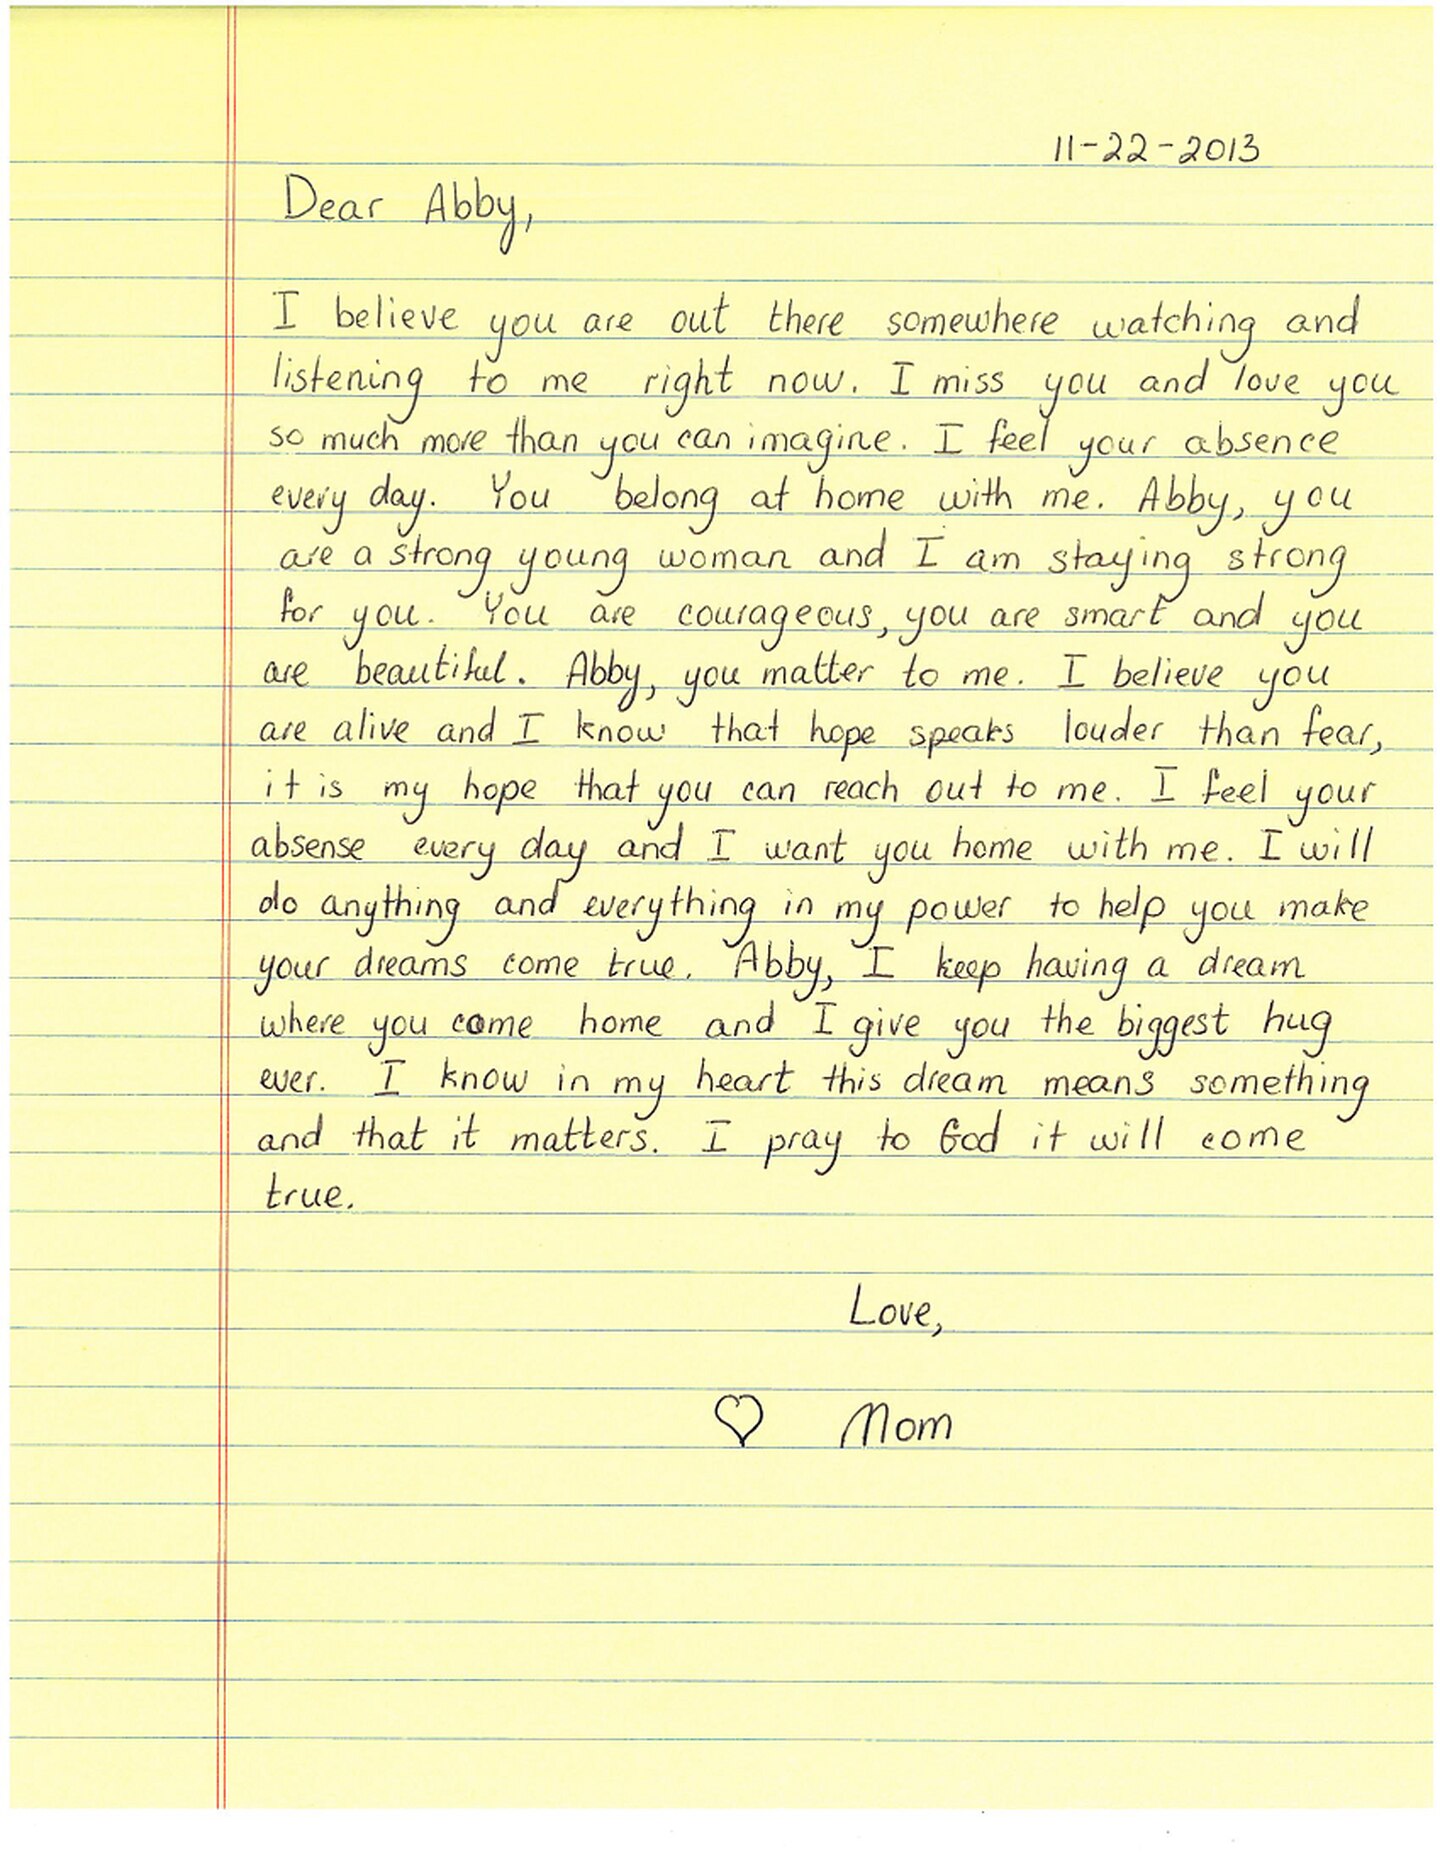 11-22-2013
Dear Abby,
I believe you are out there somewhere watching and
listening to me right now. I miss you and love you
so much more than you can imagine. I feel your absence
every day. You belong at home with me. Abby, you
are a strong young woman and I am staying strong
for you. You are courageous, you are smart and you
are beautiful. Abby, you matter to me. I believe you
are alive and I know that hope speaks louder than fear,
it is my hope that you can reach out to me. I feel your
absense every day and I want you home with me. I will
do anything and everything in my power to help you make
your dreams come true. Abby, I keep having a dream
where you come home and I give you the biggest hug
ever. I know in my heart this dream means something
and that it matters. I pray to God it will come
true.
Love,
♡ Mom